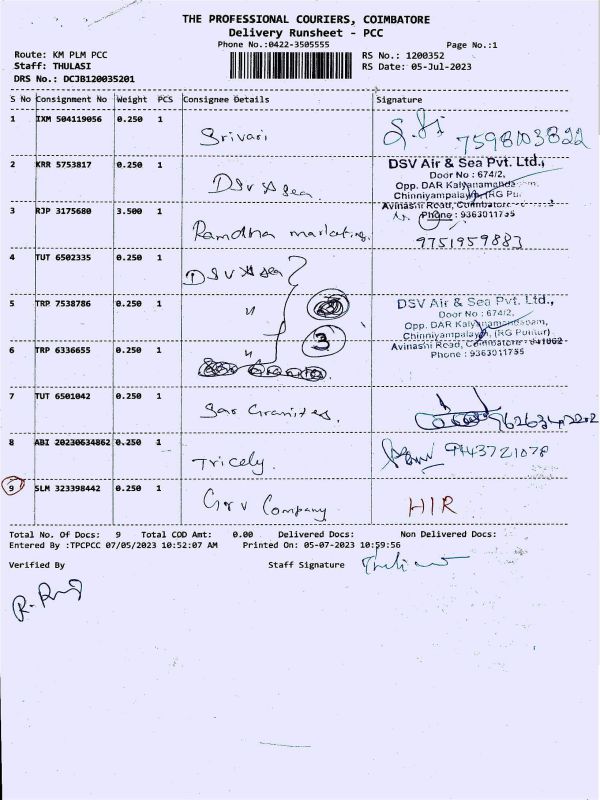 THE PROFESSIONAL COURIERS, COIMBATORE
Delivery Runsheet - PCC
Phone No.:0422-3505555
Page No.:1
Route: KM PLM PCC
Staff: THULASI
DRS No.: DCJB120035201
RS No.: 1200352
RS Date: 05-Jul-2023
S No Consignment No Weight PCS Consignee Details Signature
1 IXM 504119056 0.250 1 Srivari
7598103822
2 KRR 5753817 0.250 1 DSV A sea
DSV Air & Sea Pvt. Ltd.,
Door No : 674/2,
Opp. DAR Kalyanamandapam,
Chinniyampalayam, (RG Pu
Avinashi Road, Coimbatore
Phone : 9363011755
3 RJP 3175680 3.500 1 Ramdha marketing.
9751959883
4 TUT 6502335 0.250 1 DSV A sea
5 TRP 7538786 0.250 1 "
DSV Air & Sea Pvt. Ltd.,
Door No : 674/2,
Opp. DAR Kalyanamandapam,
Chinniyampalayam, (RG Pudur)
Avinashi Road, Coimbatore - 641062
Phone : 9363011755
6 TRP 6336655 0.250 1 "
3
7 TUT 6501042 0.250 1 Sar Granites.
8 ABI 20230634862 0.250 1 Tricely.
9443721078
9 SLM 323398442 0.250 1 Company
HIR
Total No. Of Docs: 9 Total COD Amt: 0.00 Delivered Docs: Non Delivered Docs:
Entered By :TPCPCC 07/05/2023 10:52:07 AM Printed On: 05-07-2023 10:59:56
Verified By
Staff Signature